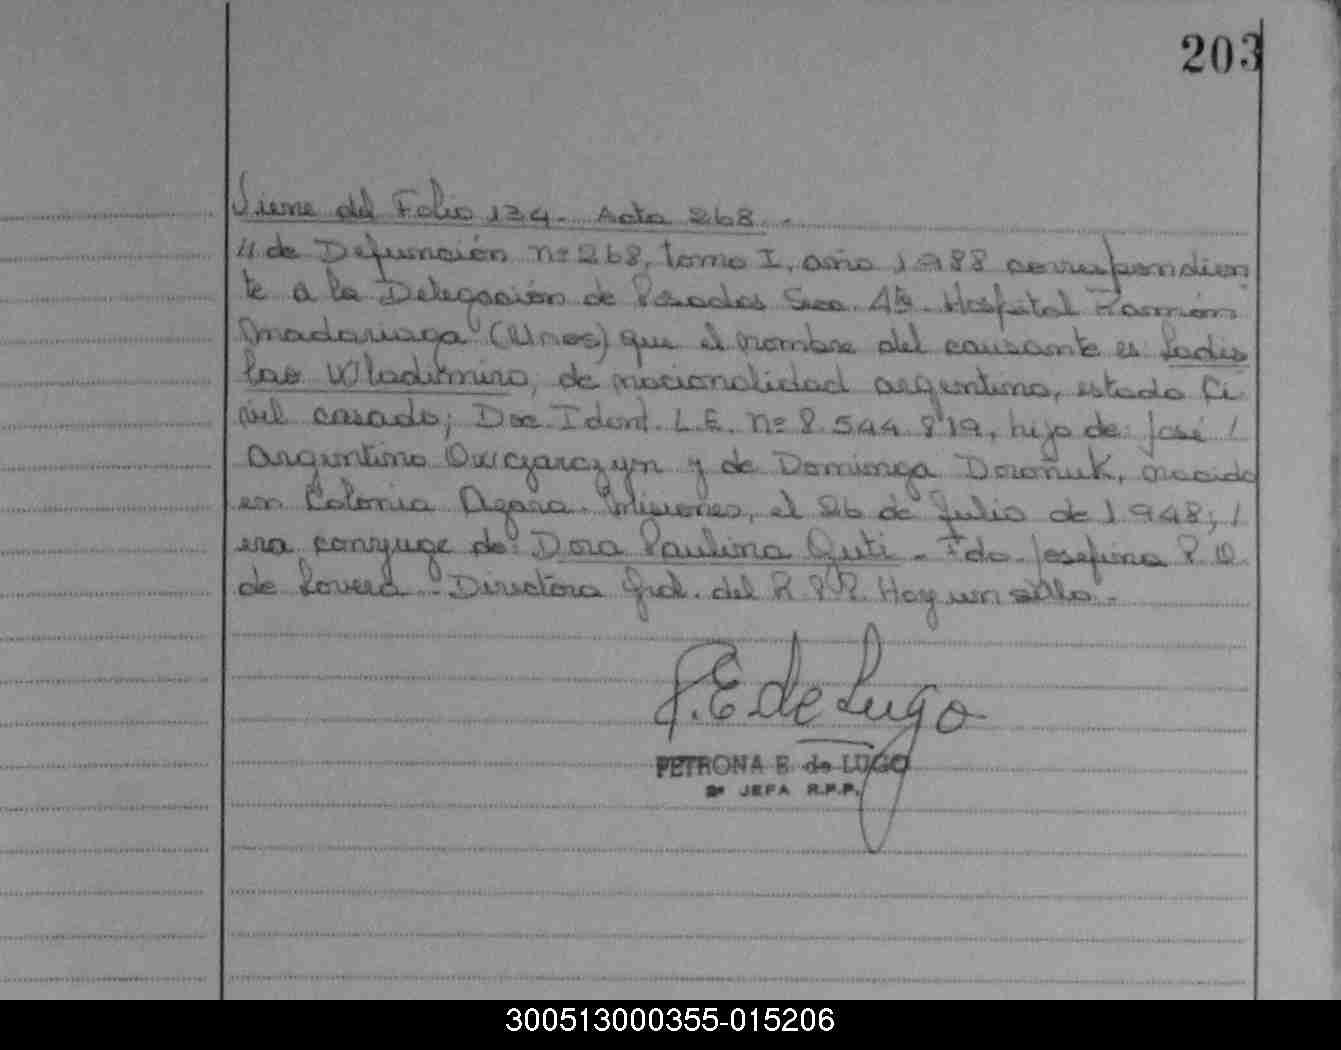 203
Viene del Folio 134. Acta 268.-
" de Defunción nº 268, tomo I, año 1988 correspondien
te a la Delegación de Posadas Secc. 4ta. Hospital Ramón
Madariaga que el nombre del causante es Ladis
lao Wladimiro, de nacionalidad argentina, estado Ci
vil casado; Doc. Ident. L.E. nº 8.544.819, hijo de: José /
Argentino Owczarczyn y de Dominga Doroñuk, nacido
en Colonia Azara. Misiones, el 26 de Julio de 1948; /
era conyuge de: Dora Paulina Outi. Fdo. Josefina P. D.
de Lovera. Directora Gral. del R.P.P. Hay un sello.-
P. E de Lugo
PETRONA E. de LUGO
2ª JEFA R.P.P.
300513000355-015206